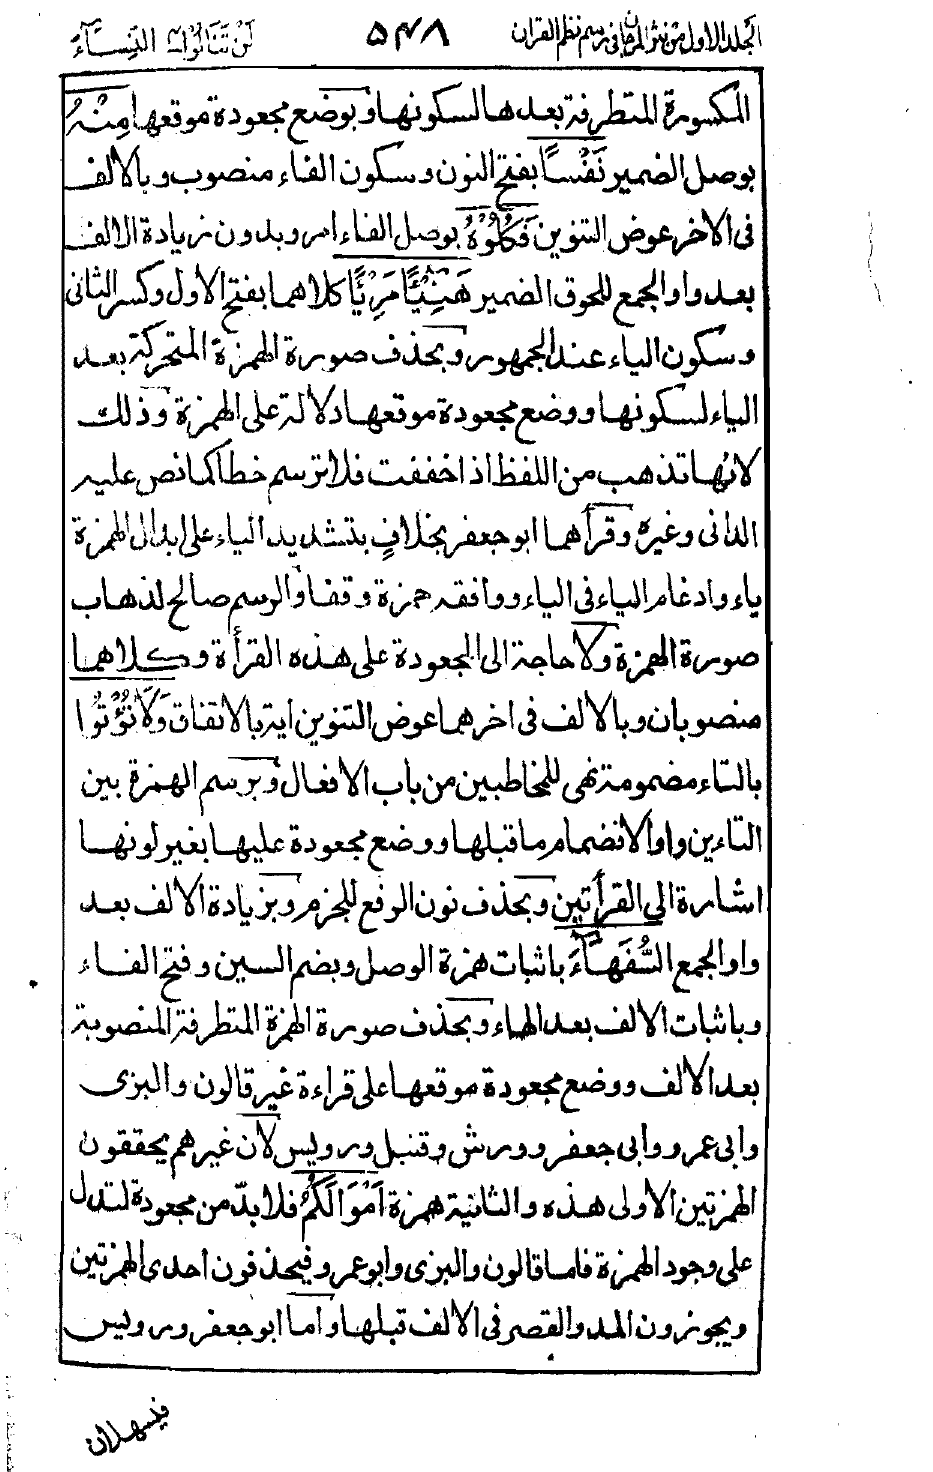 المجلد الاول من نثر المرجان في رسم نظم القران ۵۴۸ لَنْ تَنَالُوا النِّسَآء
المكسورة المتطرفة بعدها لسكونها وبوضع مجعودة موقعها مِنْهُ
بوصل الضمير نَفْسًا بفتح النون وسكون الفاء منصوب وبالالف
فى الاخر عوض التنوين فَكُلُوْهُ بوصل الفاء امر وبدون زيادة الالف
بعد واو الجمع للحوق الضمير هَنِيْٓئًا مَرِيْٓئًا كلاهما بفتح الاول وكسر الثانى
وسكون الياء عند الجمهور وبحذف صورة الهمزة المتحركة بعد
الياء لسكونها ووضع مجعودة موقعها دلالة على الهمزة وذلك
لانها تذهب من اللفظ اذا خففت فلا ترسم خطا كما نص عليه
الدانى وغيره وقرأهما ابو جعفر بخلافٍ بتشديد الياء على ابدال الهمزة
ياء وادغام الياء فى الياء ووافقه حمزة وقفا والرسم صالح لذهاب
صورة الهمزة ولا حاجة الى المجعودة على هذه القرأة وكلاهما
منصوبان وبالالف فى اخرهما عوض التنوين اية بالاتفاق وَلَا تُؤْتُوا
بالتاء مضمومة نهى للمخاطبين من باب الافعال وبرسم الهمزة بين
التاءين واوا لانضمام ما قبلها ووضع مجعودة عليها بغير لونها
اشارة الى القرأتين وبحذف نون الرفع للجزم وبزيادة الالف بعد
واو الجمع السُّفَهَآءَ باثبات همزة الوصل وبضم السين وفتح الفاء
وباثبات الالف بعد الهاء وبحذف صورة الهمزة المتطرفة المنصوبة
بعد الالف ووضع مجعودة موقعها على قراءة غير قالون والبزى
وابى عمرو وابى جعفر وورش وقنبل ورويس لان غيرهم يحققون
الهمزتين الاولى هذه والثانية همزة اَمْوَالَكُمُ فلا بدّ من مجعودة لتدل
على وجود الهمزة فاما قالون والبزى وابو عمرو فيحذفون احدى الهمزتين
ويجوزون المد والقصر فى الالف قبلها واما ابو جعفر ورويس
فيسهلان